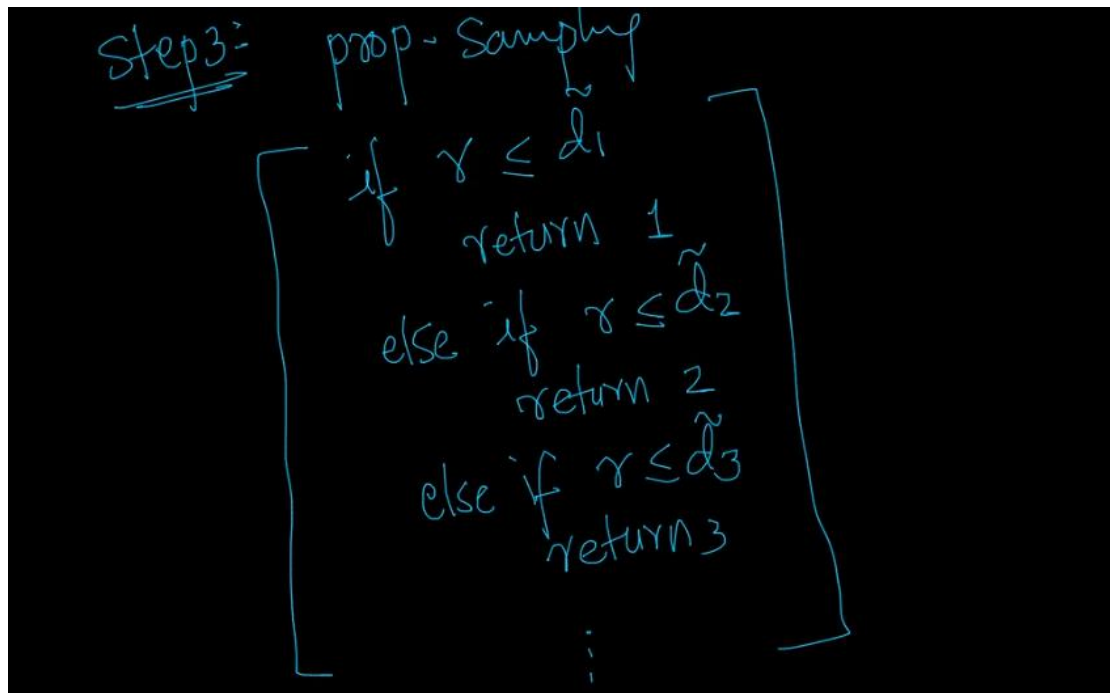 Step3:- prop-Sampling
if r ≤ d̃1
return 1
else if r ≤ d̃2
return 2
else if r ≤ d̃3
return 3
⋮